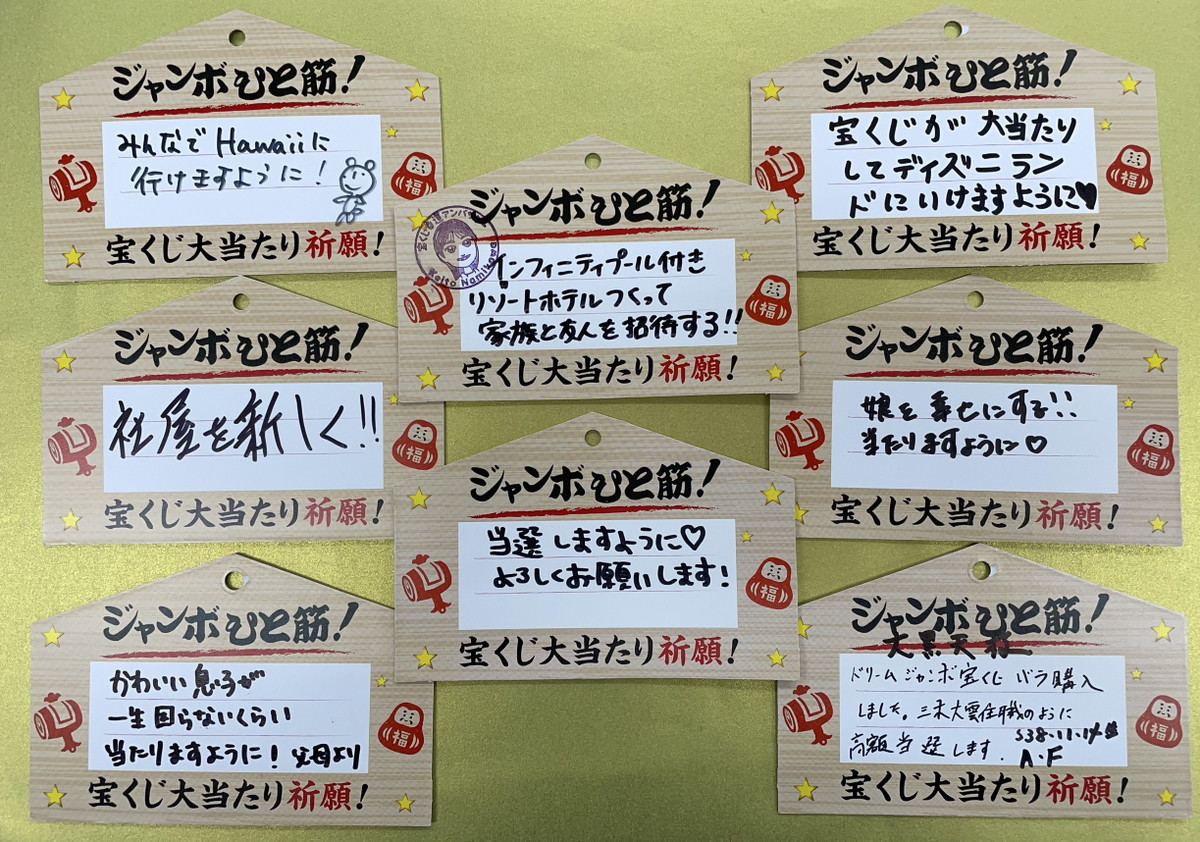 ジャンボひと筋!
みんなでHawaiiに
行けますように!
宝くじ大当たり祈願!
ジャンボひと筋!
宝くじが大当たり
してディズニラン
ドにいけますように♥
宝くじ大当たり祈願!
ジャンボひと筋!
Keito Namikawa
インフィニティプール付き
リゾートホテルつくって
家族と友人を招待する!!
宝くじ大当たり祈願!
ジャンボひと筋!
社屋を新しく!!
宝くじ大当たり祈願!
ジャンボひと筋!
娘を幸せにする!!
当たりますように♡
宝くじ大当たり祈願!
ジャンボひと筋!
当選しますように♡
よろしくお願いします!
宝くじ大当たり祈願!
ジャンボひと筋!
かわいい息子が
一生困らないくらい
当たりますように! 父母より
宝くじ大当たり祈願!
ジャンボひと筋!
大黒天様
ドリームジャンボ宝くじ バラ購入
しました。三末大雲住職のように
高額当選します.
S38.11.14生
A.F
宝くじ大当たり祈願!
福
福
福
福
福
福
福